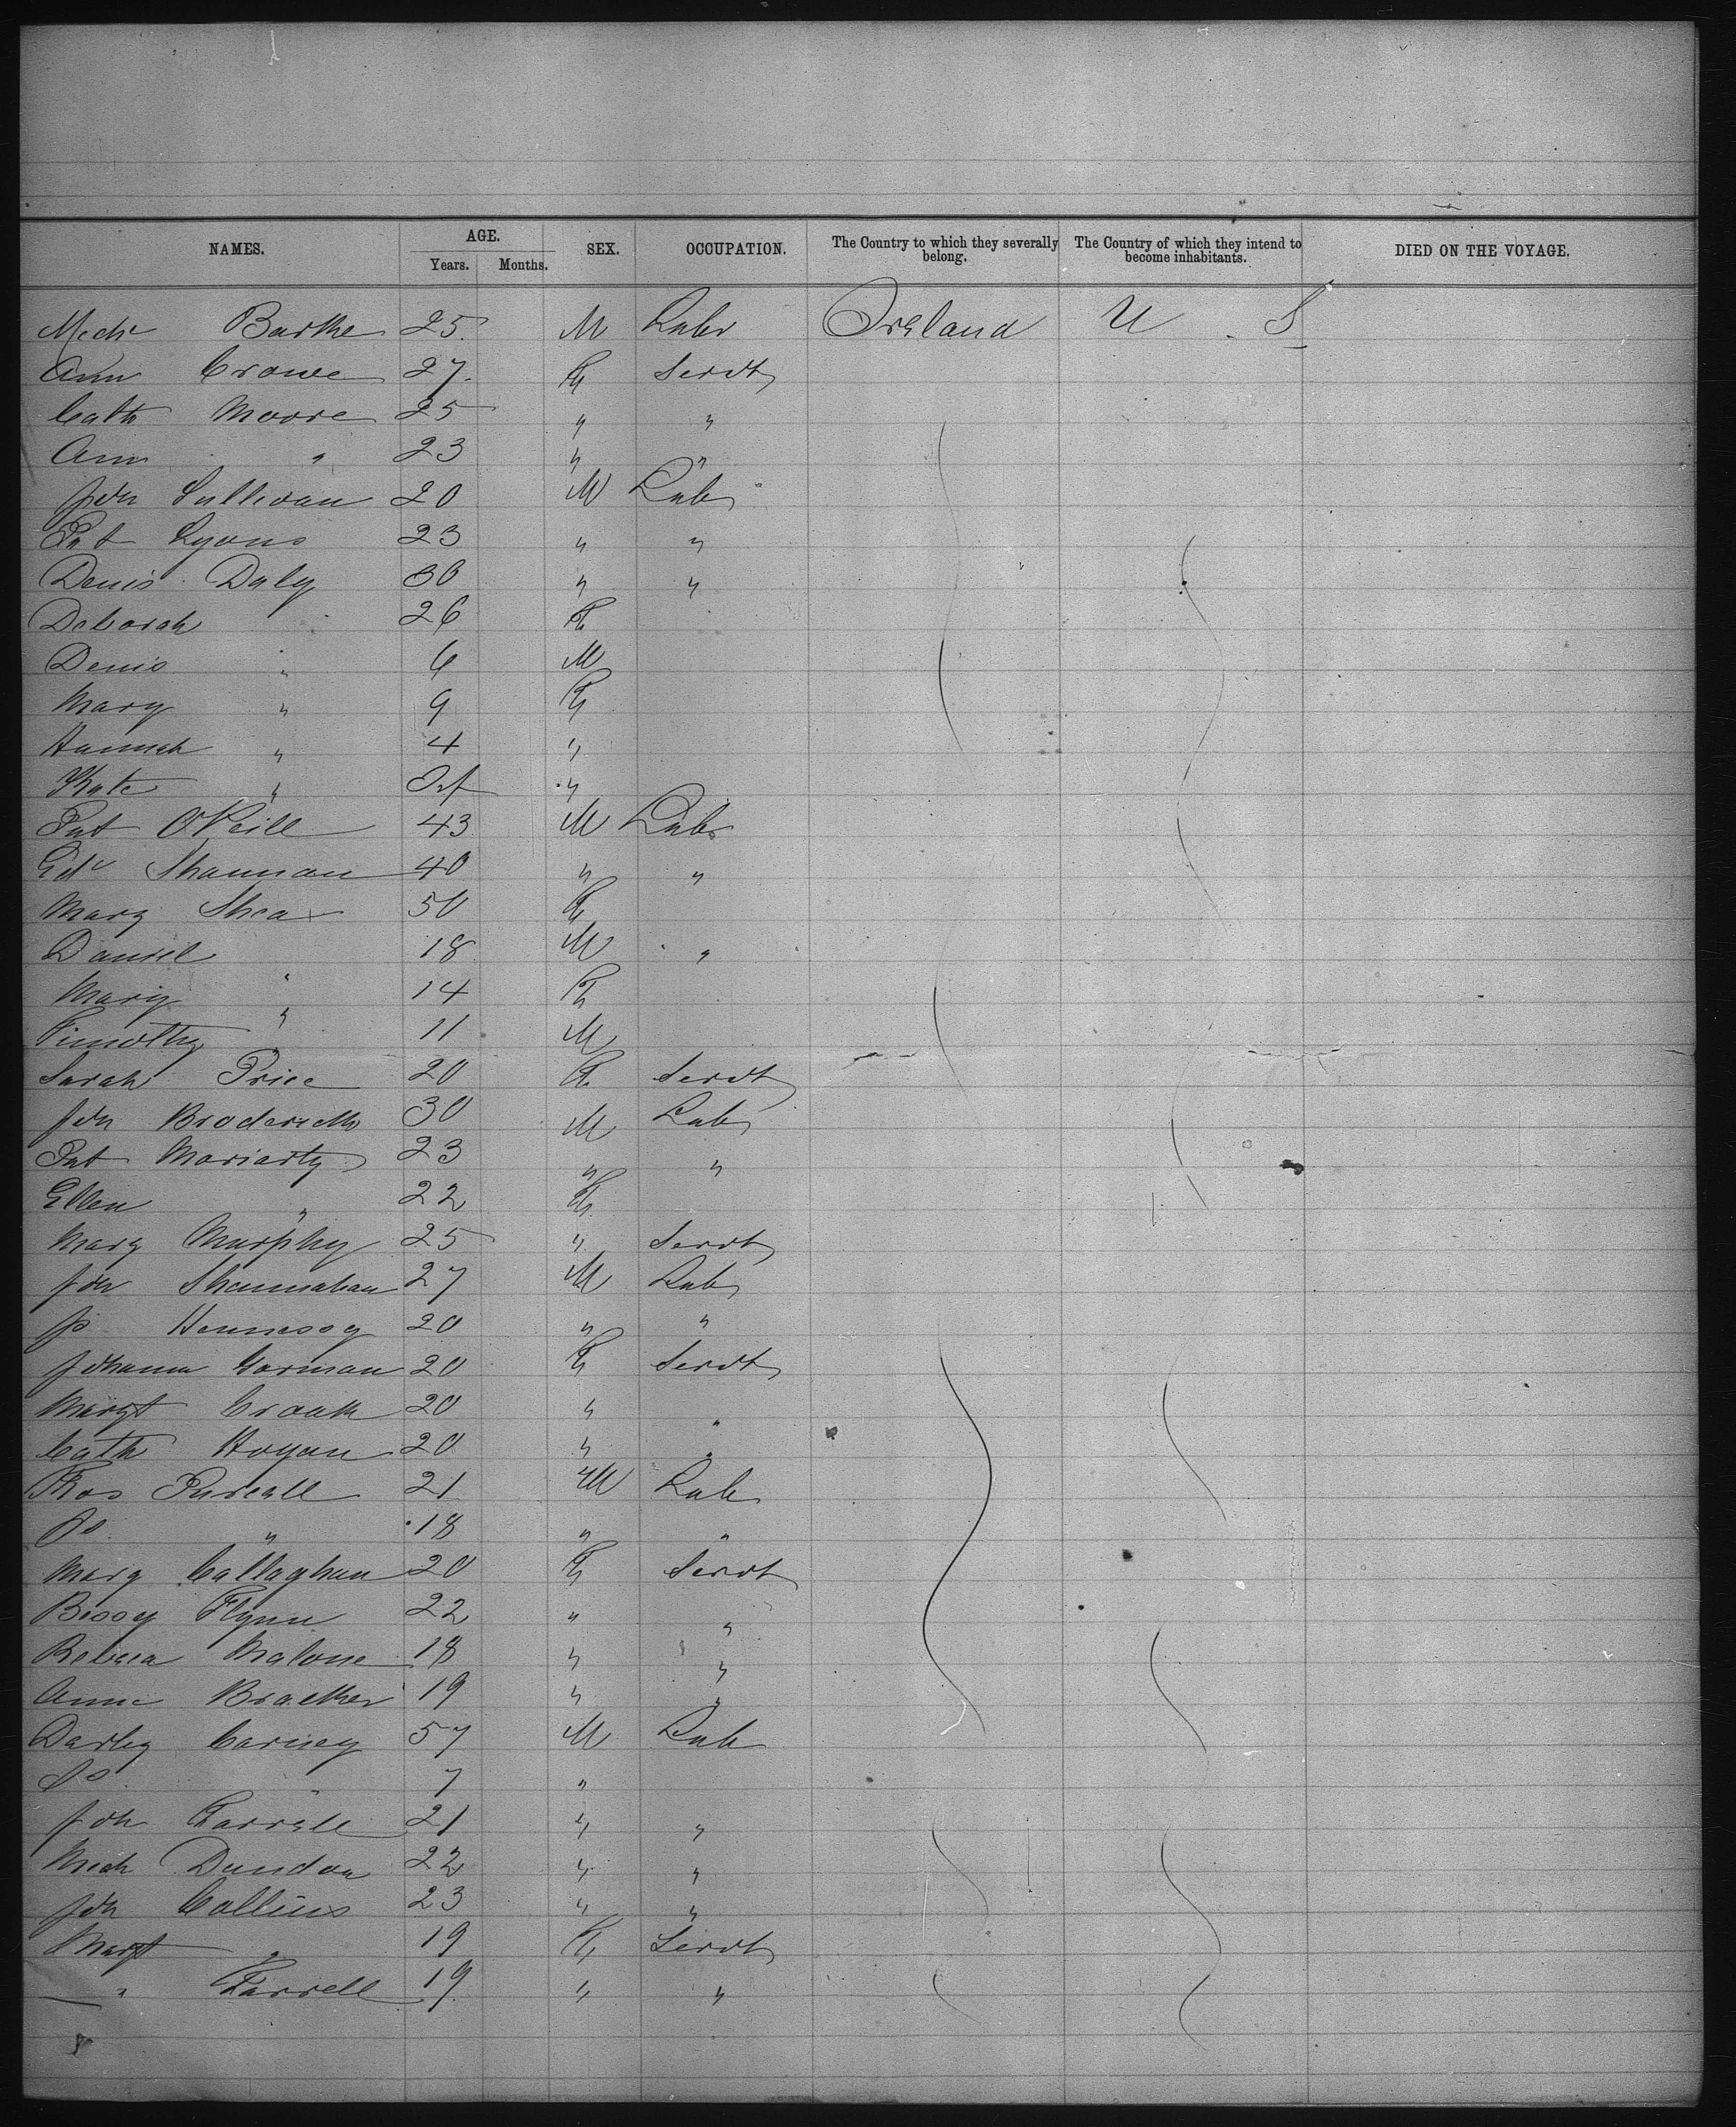 NAMES. AGE. Years. Months. SEX. OCCUPATION. The Country to which they severally belong. The Country of which they intend to become inhabitants. DIED ON THE VOYAGE.
Michl Burke 25 M Labr Ireland U.S
Ann Crowe 27 F Servt
Cath Moore 25 " "
Ann " 23 " "
Jon Sullivan 20 M Lab
Pat Lyons 23 " "
Denis Daly 30 " "
Deborah 26 F
Denis " 6 M
Mary " 9 F
Hannah " 4 "
Kate " Inf "
Pat O'Neill 43 M Labr
Edr Shannon 40 " "
Mary Shea 50 F
Daniel 18 M "
Mary " 14 F
Timothy " 11 M
Sarah Price 20 F Servt
Jon Broderick 30 M Lab
Pat Moriarty 23 " "
Ellen " 22 F
Mary Murphy 25 " Servt
Jon Shannahan 27 M Lab
Js Hennessy 20 " "
Johanna Gorman 20 F Servt
Margt Cronk 20 " "
Cath Hogan 20 " "
Thos Purcell 21 M Lab
Js " 18 " "
Mary Callaghan 20 F Servt
Bessy Flynn 22 " "
Rebecca Malone 18 " "
Anne Bracken 19 " "
Darby Carney 57 M Lab
Do " 7 "
Jon Farrell 21 " "
Mich Dundon 22 " "
Jon Collins 23 " "
Margt " 19 F Servt
" Farrell 19 " "